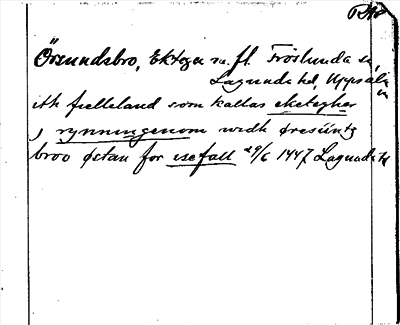 Örsundsbro, Ektegen sv. fl. Fröslunda sn,
Lagunda hd, Uppsala
ith fielleland som kallas eketeghær
j rynningenom widh øresiintz
broo østan for isefall 29/6 1447 Lagunda